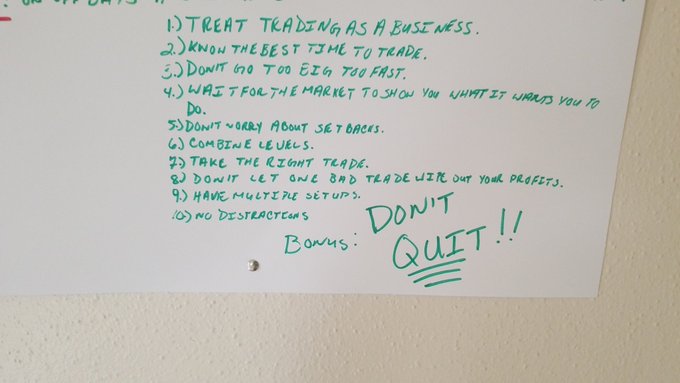 ON OFF DAYS
1.) TREAT TRADING AS A BUSINESS.
2.) KNOW THE BEST TIME TO TRADE.
3.) DON'T GO TOO BIG TOO FAST.
4.) WAIT FOR THE MARKET TO SHOW YOU WHAT IT WANTS YOU TO
DO.
5.) DON'T WORRY ABOUT SETBACKS.
6.) COMBINE LEVELS.
7.) TAKE THE RIGHT TRADE.
8.) DON'T LET ONE BAD TRADE WIPE OUT YOUR PROFITS.
9.) HAVE MULTIPLE SETUPS.
10.) NO DISTRACTIONS
BONUS: DON'T
QUIT!!